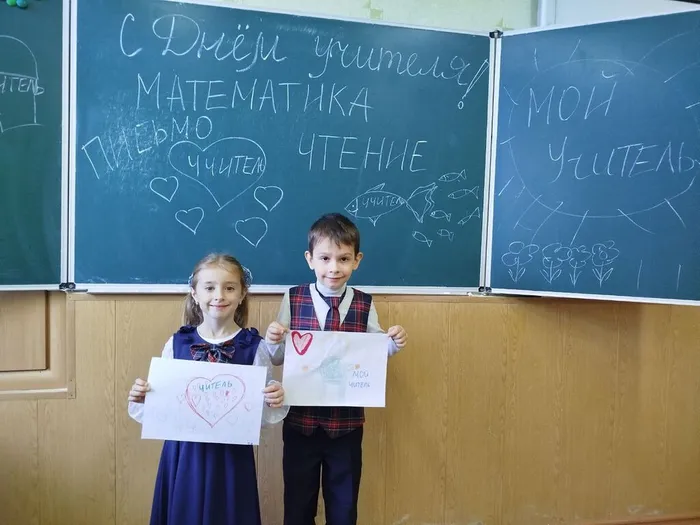 С Днём учителя!
МАТЕМАТИКА
ПИСЬМО
УЧИТЕЛЬ
ЧТЕНИЕ
УЧИТЕЛЬ
МОЙ
УЧИТЕЛЬ
УЧИТЕЛЬ
МОЙ
УЧИТЕЛЬ